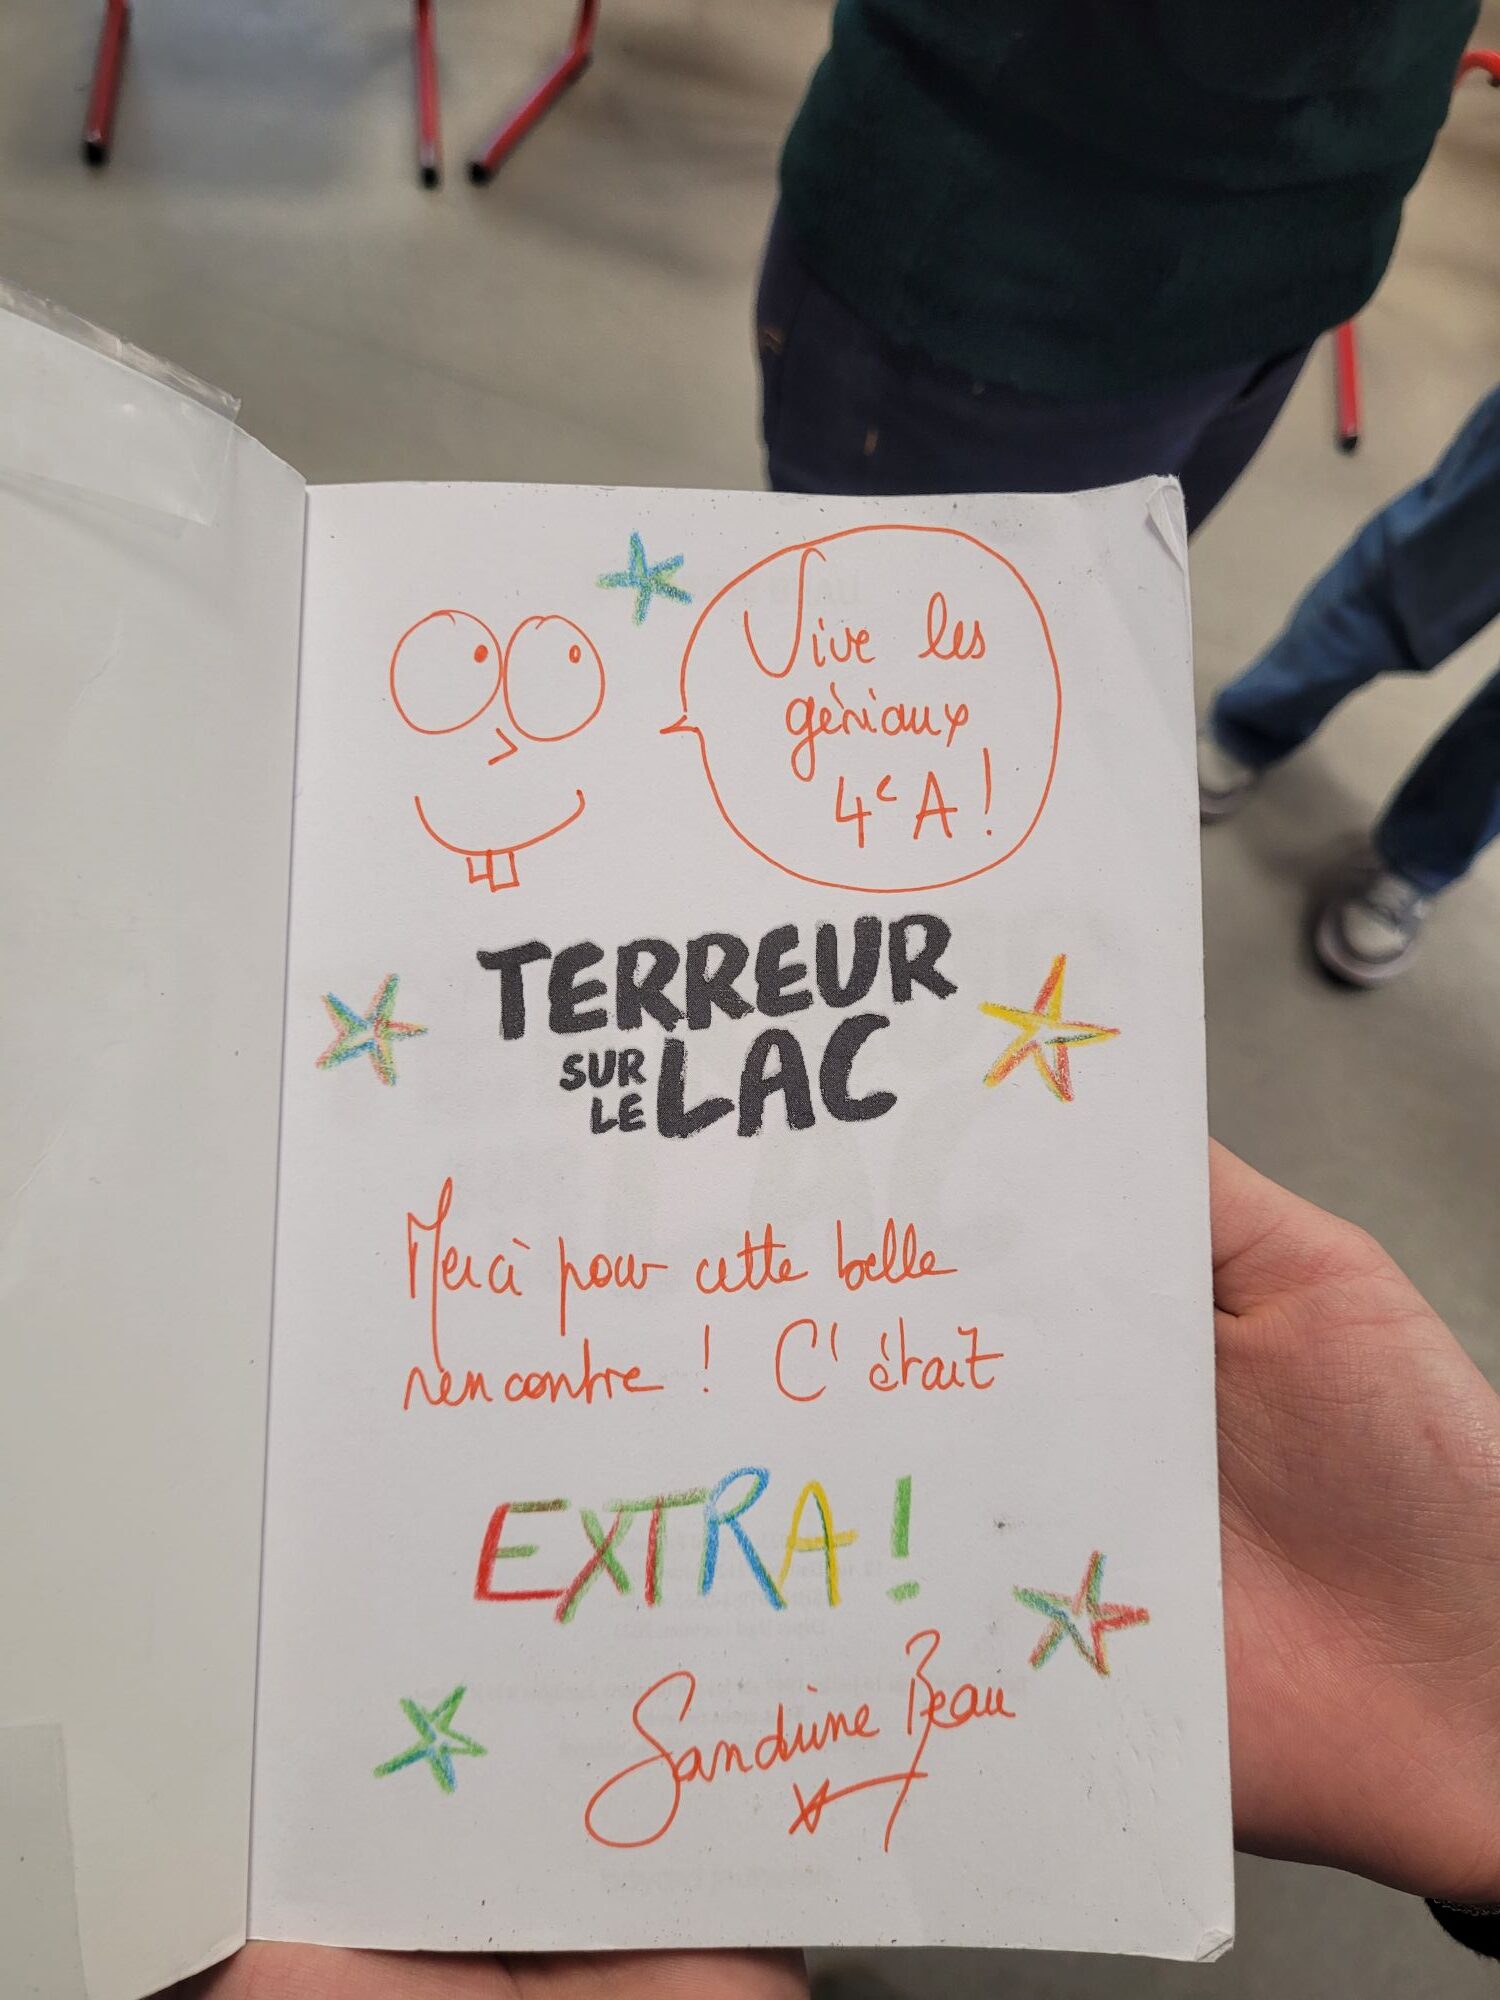 Vive les
géniaux
4e A !
TERREUR
SUR
LE LAC
Merci pour cette belle
rencontre ! C'était
EXTRA !
Sandrine Beau